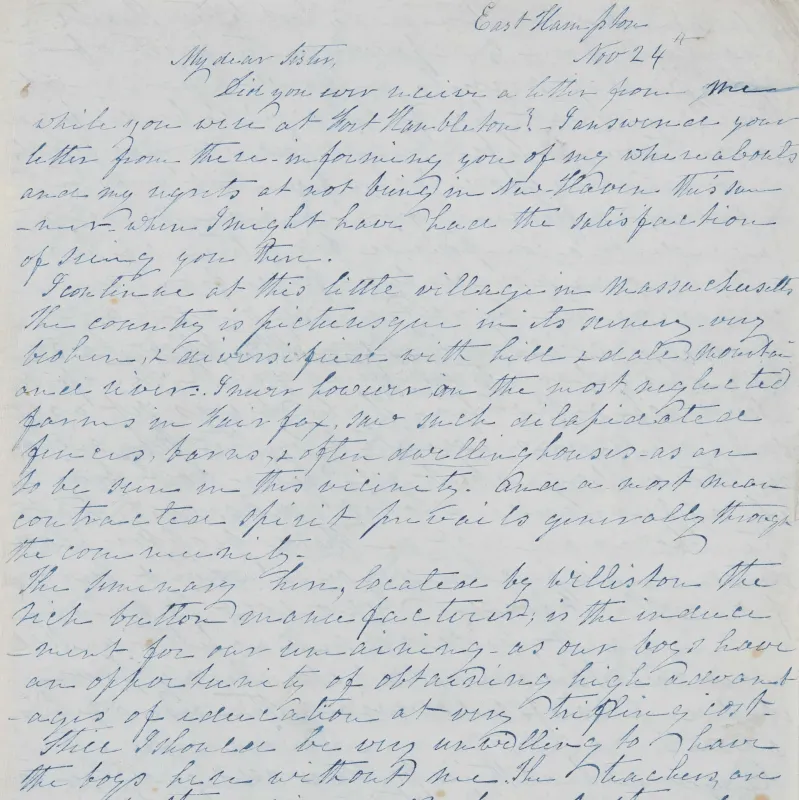 East Hampton
Nov 24th
My dear Sister,
Did you ever receive a letter from me
while you were at Fort Hambleton? - I answered your
letter from there - informing you of my whereabouts
and my regrets at not being in New Haven this sum
-mer - when I might have had the satisfaction
of seeing you there.
I continue at this little village in Massachusetts
The country is picturesque in its scenery, very
broken, & diversified with hill & dale, mountain
and river. I never however, in the most neglected
farms in Fairfax, saw such dilapidated
fences, barns, & often dwelling houses - as are
to be seen in this vicinity. And a most mean
contracted spirit prevails generally through
the community -
The Seminary here, located by Williston the
rich button manufacturer, is the induce
-ment for our remaining - as our boys have
an opportunity of obtaining high advant
-ages of education at very trifling cost -
Still I should be very unwilling to have
the boys here without me. The teachers, are